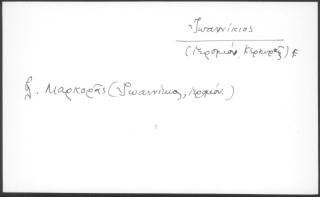 Ἰωαννίκιος
(ἱερομόν. Κερκυρ.) ξ
ζ. Μαρκορᾶς (Ἰωαννίκιος, ἱερομόν.)